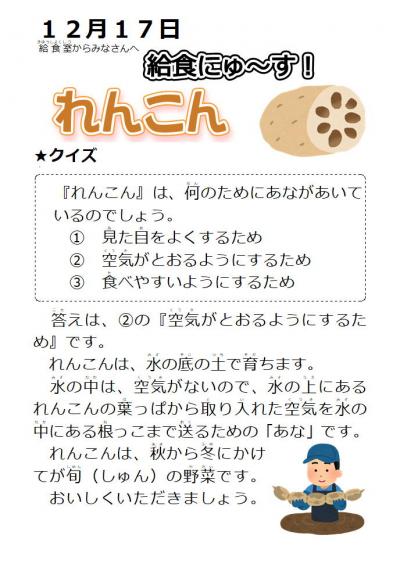 １２月１７日
給食室からみなさんへ
給食にゅ～す！
れんこん
★クイズ
『れんこん』は、何のためにあながあいて
いるのでしょう。
① 見た目をよくするため
② 空気がとおるようにするため
③ 食べやすいようにするため
答えは、②の『空気がとおるようにするた
め』です。
れんこんは、水の底の土で育ちます。
水の中は、空気がないので、水の上にある
れんこんの葉っぱから取り入れた空気を水の
中にある根っこまで送るための「あな」です。
れんこんは、秋から冬にかけ
てが旬（しゅん）の野菜です。
おいしくいただきましょう。